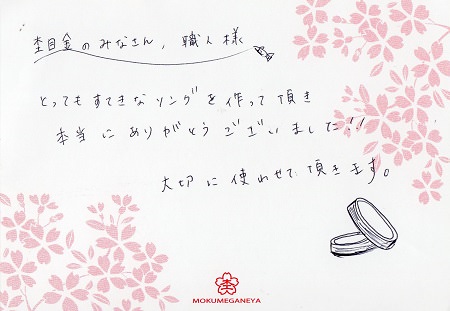 杢目金のみなさん, 職人様
とってもすてきなリングを作って頂き
本当にありがとうございました!!
大切に使わせて頂きます。
杢
MOKUMEGANEYA